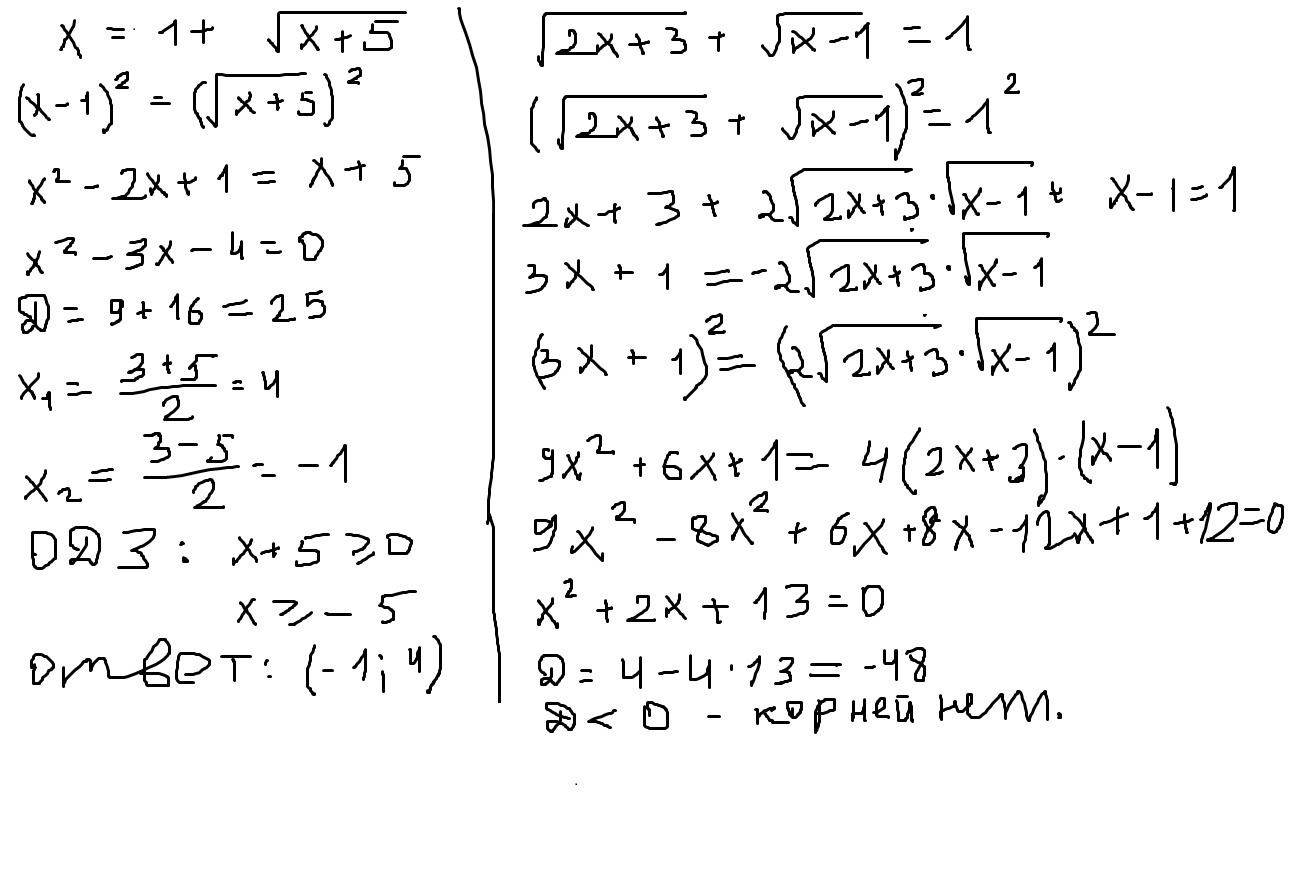 x = 1 + √(x+5)
(x-1)² = (√(x+5))²
x² - 2x + 1 = x + 5
x² - 3x - 4 = 0
D = 9 + 16 = 25
x₁ = (3+5)/2 = 4
x₂ = (3-5)/2 = -1
ОДЗ: x + 5 ≥ 0
x ≥ - 5
ответ: (-1; 4)
√(2x+3) + √(x-1) = 1
(√(2x+3) + √(x-1))² = 1²
2x + 3 + 2√(2x+3)·√(x-1) + x-1 = 1
3x + 1 = -2√(2x+3)·√(x-1)
(3x + 1)² = (2√(2x+3)·√(x-1))²
9x² + 6x + 1 = 4(2x+3)·(x-1)
9x² - 8x² + 6x + 8x - 12x + 1 + 12 = 0
x² + 2x + 13 = 0
D = 4 - 4·13 = -48
D < 0 - корней нет.